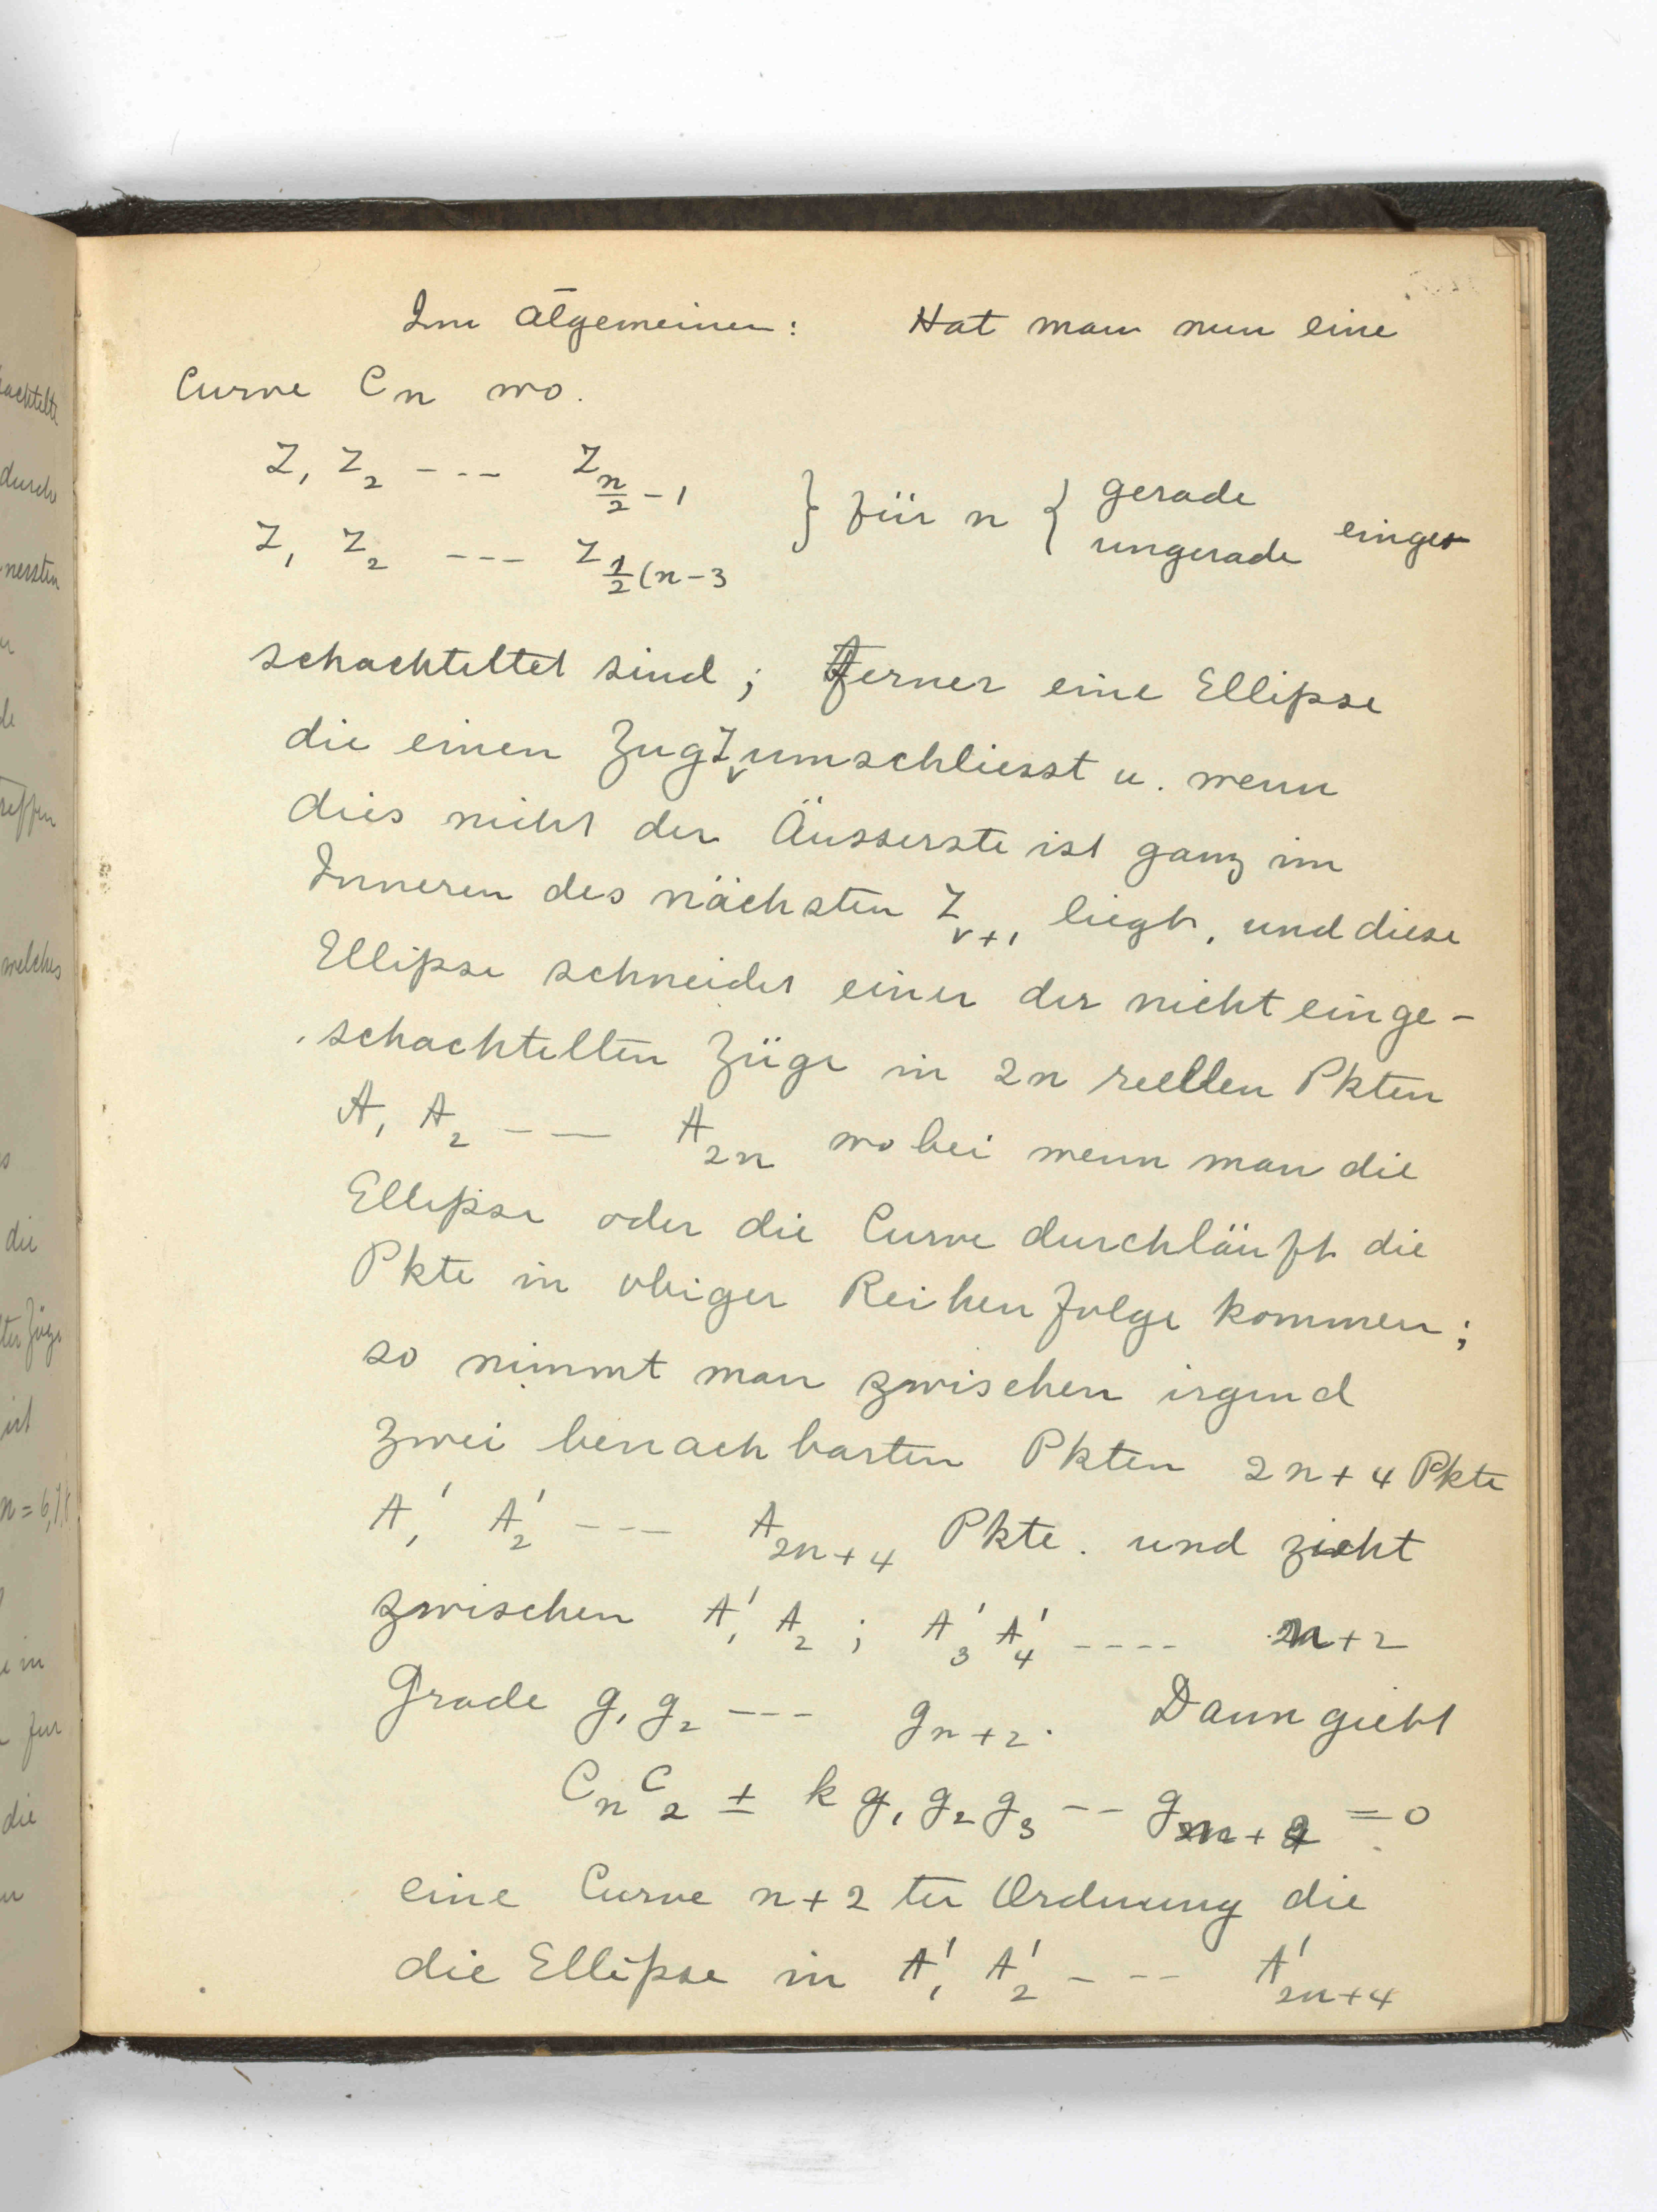 Im Al̄gemeinen: Hat man nun eine
Curve C_n wo.
Z_1 Z_2 --- Z_{n/2 - 1}
} für n { gerade
ungerade einge
Z_1 Z_2 --- Z_{1/2(n-3}
schachteltet sind; ferner eine Ellipse
die einen Zug Z_ν umschliesst u. wenn
dies nicht der Äusserste ist ganz im
Inneren des nächsten Z_{ν+1} liegt, und diese
Ellipse schneidet einen der nicht einge-
schachtelten Züge in 2n reellen Pkten
A_1 A_2 --- A_{2n} wobei wenn man die
Ellipse oder die Curve durchläuft die
Pkte in obiger Reihenfolge kommen;
so nimmt man zwischen irgend
zwei benachbarten Pkten 2n+4 Pkte
A_1' A_2' --- A_{2n+4} Pkte. und zieht
zwischen A_1' A_2; A_3' A_4' ---- n+2
Grade g_1 g_2 --- g_{n+2}. Dann giebt
C_n C_2 ± k g_1 g_2 g_3 -- g_{n+2} = 0
eine Curve n+2 ter Ordnung die
die Ellipse in A_1' A_2' --- A'_{2n+4}